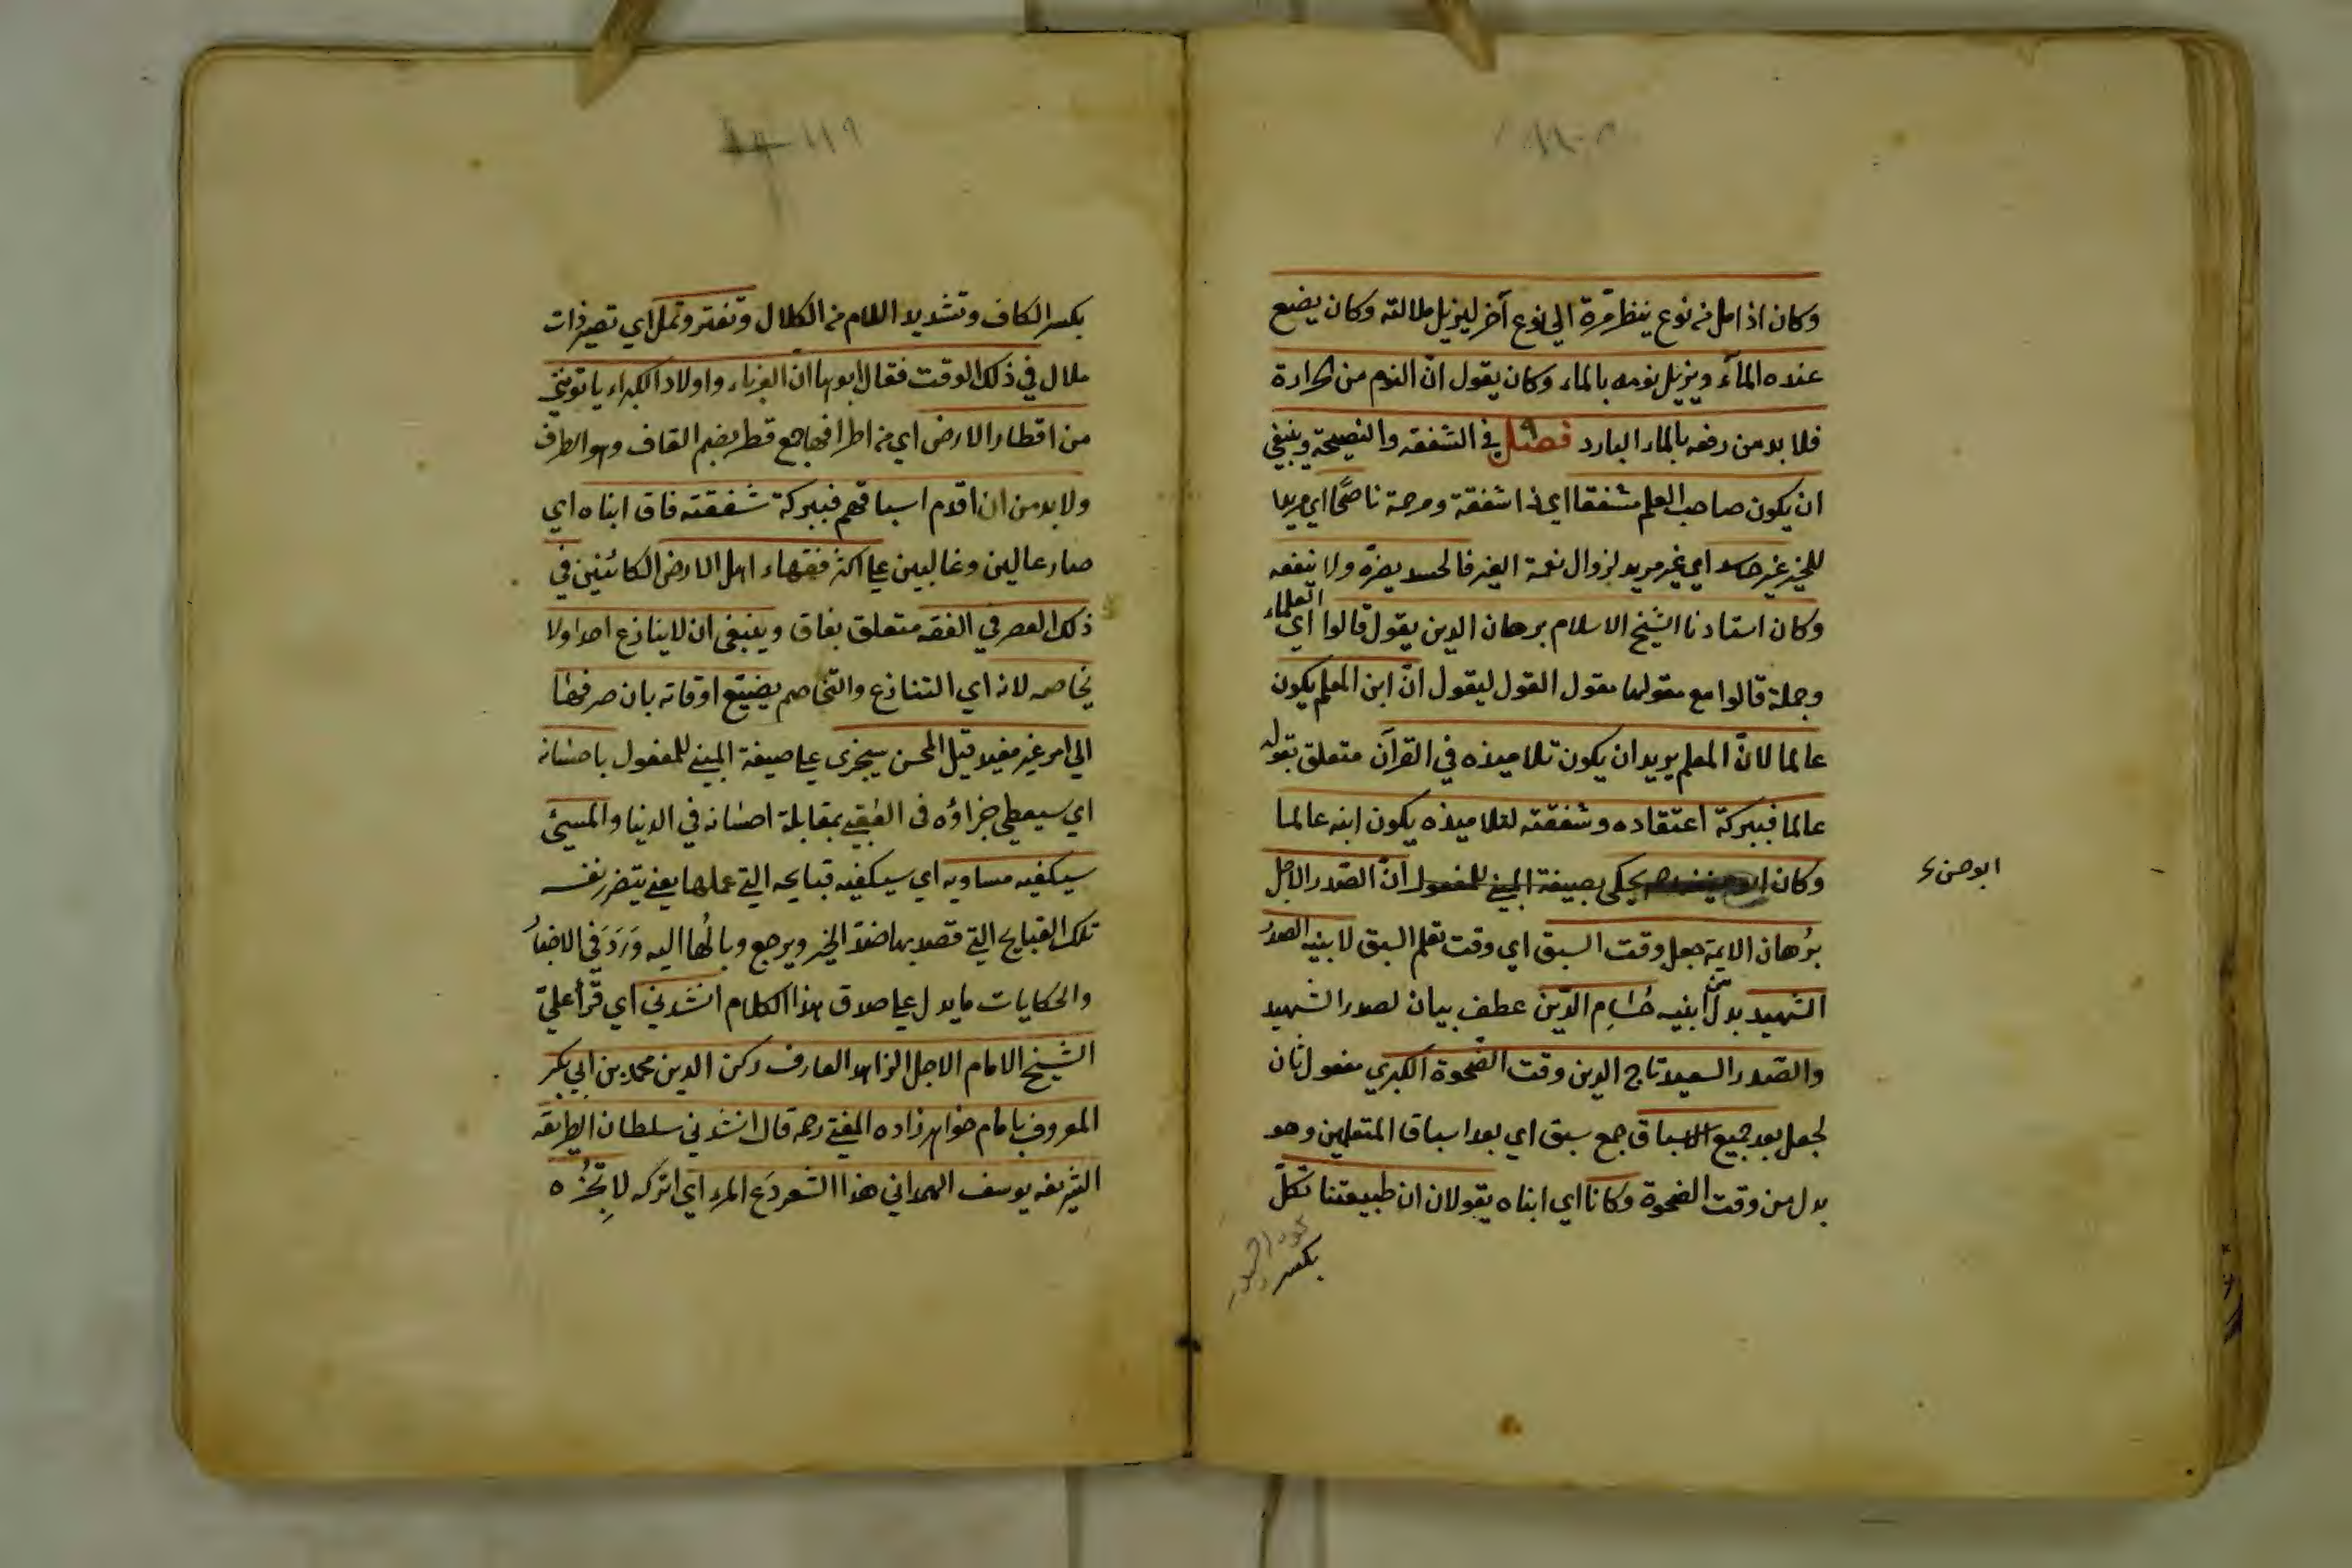 وكان اذا مل من نوع ينظر مرة الي نوع آخر ليزيل ملالته وكان يضع
عنده المآء ويزيل نومه بالماء وكان يقول انّ النوم من الحرارة
فلا بد من دفعه بالماء البارد فصل في الشفقة والنصيحة وينبغي
ان يكون صاحب العلم مشفقا اي ذا شفقة ومرحمة ناصحًا اي مريدا
للخير غير حاسد اي غير مريد لزوال نعمة الغير فالحسد يضرّه ولا ينفعه
وكان استادنا الشيخ الاسلام برهان الدين يقول قالوا اي العلماء
وجملة قالوا مع مقولها مقول القول ليقول انّ ابن المعلم يكون
عالما لانّ المعلم يريد ان يكون تلاميذه في القرآن متعلق بقوله
عالما فببركة اعتقاده وشفقته لتلاميذه يكون ابنه عالما
وكان يحكي بصيغة المبني للمفعول انّ الصّدر الاجل
ابو حسن
برُهان الايمة جعل وقت السبق اي وقت تعلم السبق لابنيه الصدرُ
الشهيد بدل من ابنيه حُسَامِ الدّين عطف بيان لصدر الشهيد
والصّدر السعيد تاج الدين وقت الضّحوة الكبري مفعول ثان
لجعل بعد جميع الاسباق جمع سبق اي بعد اسباق المتعلمين وهو
بدل من وقت الضحوة وكانا اي ابناه يقولان ان طبيعتنا تكلّ
بكسر
بكسر الكاف وتشديد اللام من الكلال وتفتر وتمل اي تصير ذات
ملال في ذلك الوقت فقال ابوهما انّ الغرباء واولاد الكبراء ياتونني
من اقطار الارض اي من اطرافها جمع قطر بضم القاف وهو الطرف
ولا بد من ان اقدم اسباقهم فببركة شفقته فاق ابناه اي
صار عالين وغالبين علي اكثر فقهاء اهل الارض الكائنين في
ذلك العصر في الفقه متعلق بفاق وينبغي ان لا ينازع احدا ولا
يخاصمه لانه اي التنازع والتخاصم يضيّع اوقاته بان صرفها
الي امر غير مفيد قيل المحسن سيجزي علي صيغة المبني للمفعول باحسانه
اي سيعطي جزاؤه في العقبي بمقابلة احسانه في الدنيا والمسيئ
سيكفيه مساويه اي سيكفيه قبايحه التي عملها يعني يتضرر نفسه
تلك القبايح التي قصد بها ضدّ الخير ويرجع وبالُها اليه وَرَدَ في الاخبار
والحكايات ما يدل علي صدق هذا الكلام انشدني اي قرأ عليّ
الشيخ الامام الاجل الزاهد العارف ركن الدين محمد بن ابي بكر
المعروف بامام خواهر زاده المفتي رحمه قال انشدني سلطان الطريقة
الشريفه يوسف الهمداني هذا الشعر دَع المرء اي اتركه لا تجُزِه